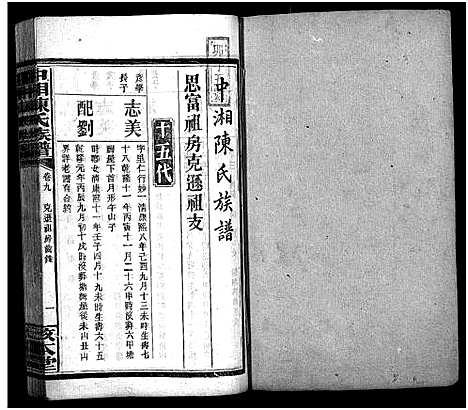 中湘陳氏族譜
思富祖房克遜祖支
十五代
彥學
長子
志美
字里仁行妙一清康熙八年己酉九月十三未時生壽七
十八乾隆十一年丙寅十一月二十六申時歿葬
屋場下首月形午山子
配劉
時聯女清康熙十一年壬子四月十九未時生壽六十五
乾隆元年丙辰九月初十戌時歿葬後
界詳老譜有合約
中湘陳氏族譜
卷九
克遜祖房齒錄
一